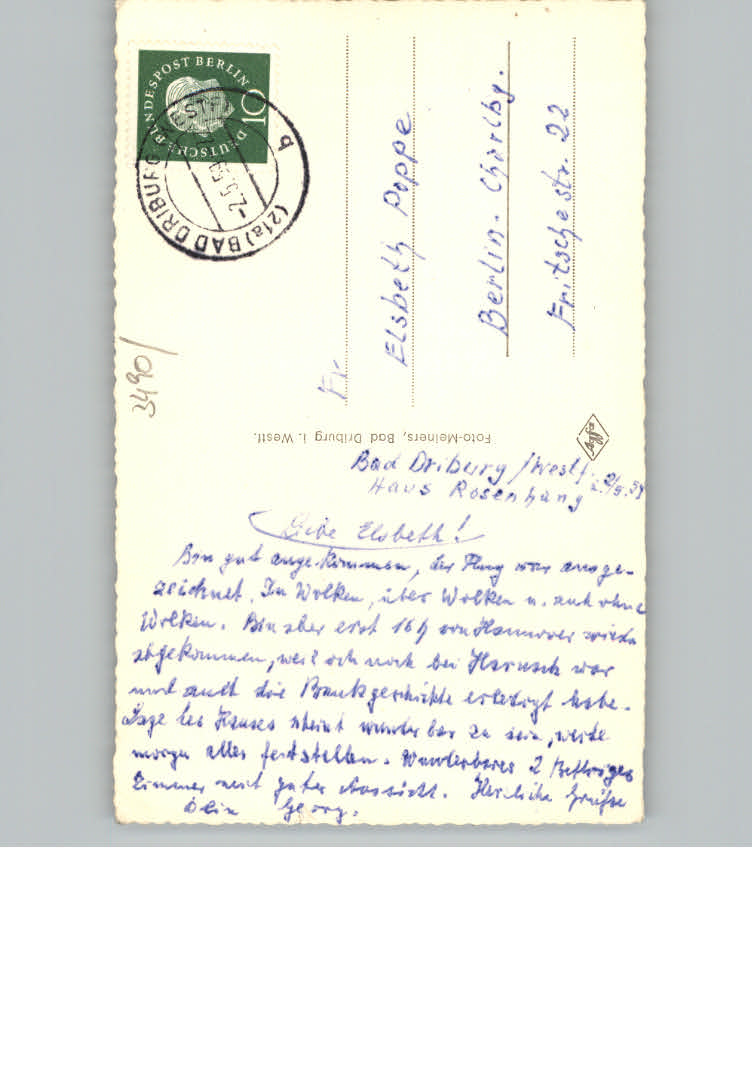 DEUTSCHE BUNDESPOST BERLIN
10
(21a) BAD DRIBURG
-2.5.59
b
3490/
Fr.
Elsbeth Poppe
Berlin-Charlbg.
Fritschestr. 22
Foto-Meiners, Bad Driburg i. Westf.
Agfa
Bad Driburg/Westf. 2/5.59
Haus Rosenhang
Liebe Elsbeth!
Bin gut angekommen, der Flug war ausge-
zeichnet. In Wolken, über Wolken u. auch ohne
Wolken. Bin aber erst 16 h von Hannover wieder
abgekommen, weil ich noch bei Harnisch war
und auch die Bankgeschichte erledigt habe.
Lage des Hauses scheint wunderbar zu sein, werde
morgen alles feststellen. Wunderbares 2 Bettiges
Zimmer mit guter Aussicht. Herzliche Grüße
Dein Georg.